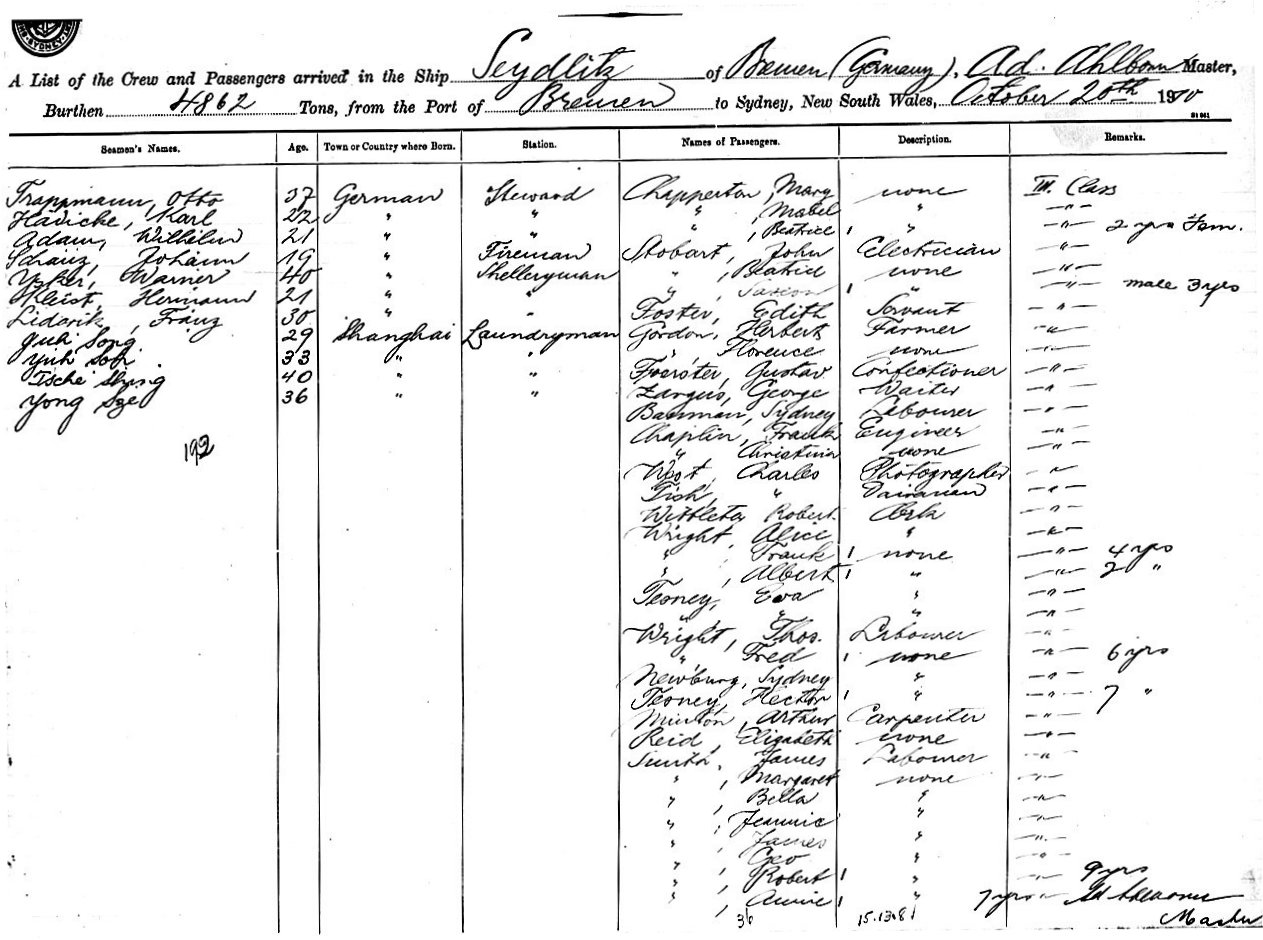 A List of the Crew and Passengers arrived in the Ship Seydlitz of Bremen (Germany), Ad. Ahlborn Master,
Burthen 4862 Tons, from the Port of Bremen to Sydney, New South Wales, October 20th 1910
Seamen's Names. Age. Town or Country where Born. Station. Names of Passengers. Description. Remarks.
Trappmann, Otto 37 German Steward Chapperton, Mary none III. Class
Hädicke, Karl 22 " " " , Mabel " — " —
Adam, Wilhelm 21 " " " , Beatrice 1 " — " — 2 yrs Fem.
Schanz, Johann 19 " Fireman Stobart, John Electrician — " —
Warner 40 " " , Beatrice none — " —
Kleist, Hermann 21 " " " , 1 " — " — male 3 yrs
Liderik, Franz 30 " " Foster, Edith Servant — " —
Yuh Song 29 Shanghai Laundryman Gordon, Herbert Farmer — " —
Yuh Sobi 33 " " " , Florence none — " —
Tsche Shing 40 " " Foerster, Gustav Confectioner — " —
Yong Sze 36 " " Zargus, George Waiter — " —
Bauman, Sydney Labourer — " —
192 Chaplin, Frank Engineer — " —
" Christina none — " —
Charles Photographer — " —
Fish, " Dairyman — " —
Robert. Clerk — " —
Wright, Alice " — " —
" , Frank 1 none — " — 4 yrs
" , Albert 1 " — " — 2 "
Tesney, Eva " — " —
" " " — " —
Wright, Thos. Labourer — " —
" Fred 1 none — " — 6 yrs
Newburg, Sydney " — " —
Tesney, Hector 1 " — " — 7 "
Minton, Arthur Carpenter — " —
Reid, Elizabeth none — " —
Smith, James Labourer — " —
" , Margaret none — " —
" , Bella " — " —
" , Jeannie " — " —
" , James " — " —
" , Geo " — " —
" , Robert 1 " — " — 9 yrs
" , Annie 1 " 7 yrs — " — Ad. Ahlborn
36 15.1308 Master